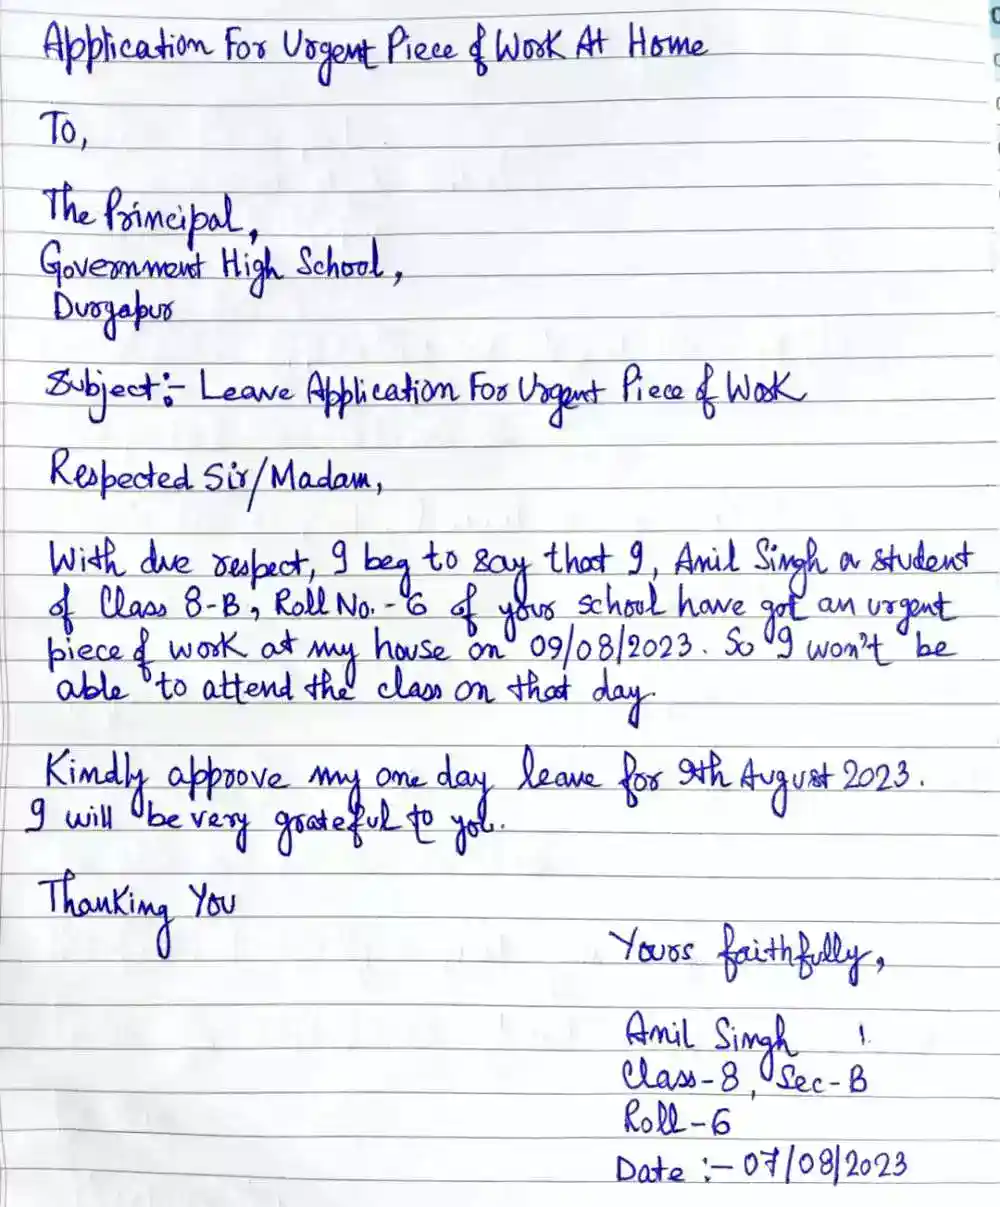 Application For Urgent Piece of Work At Home
To,
The Principal,
Government High School,
Durgapur
Subject:- Leave Application For Urgent Piece of Work
Respected Sir/Madam,
With due respect, I beg to say that I, Anil Singh a student
of Class 8-B, Roll No.-6 of your school have got an urgent
piece of work at my house on 09/08/2023. So I won't be
able to attend the class on that day.
Kindly approve my one day leave for 9th August 2023.
I will be very grateful to you.
Thanking You
Yours faithfully,
Anil Singh
Class-8, Sec-B
Roll-6
Date :- 07/08/2023